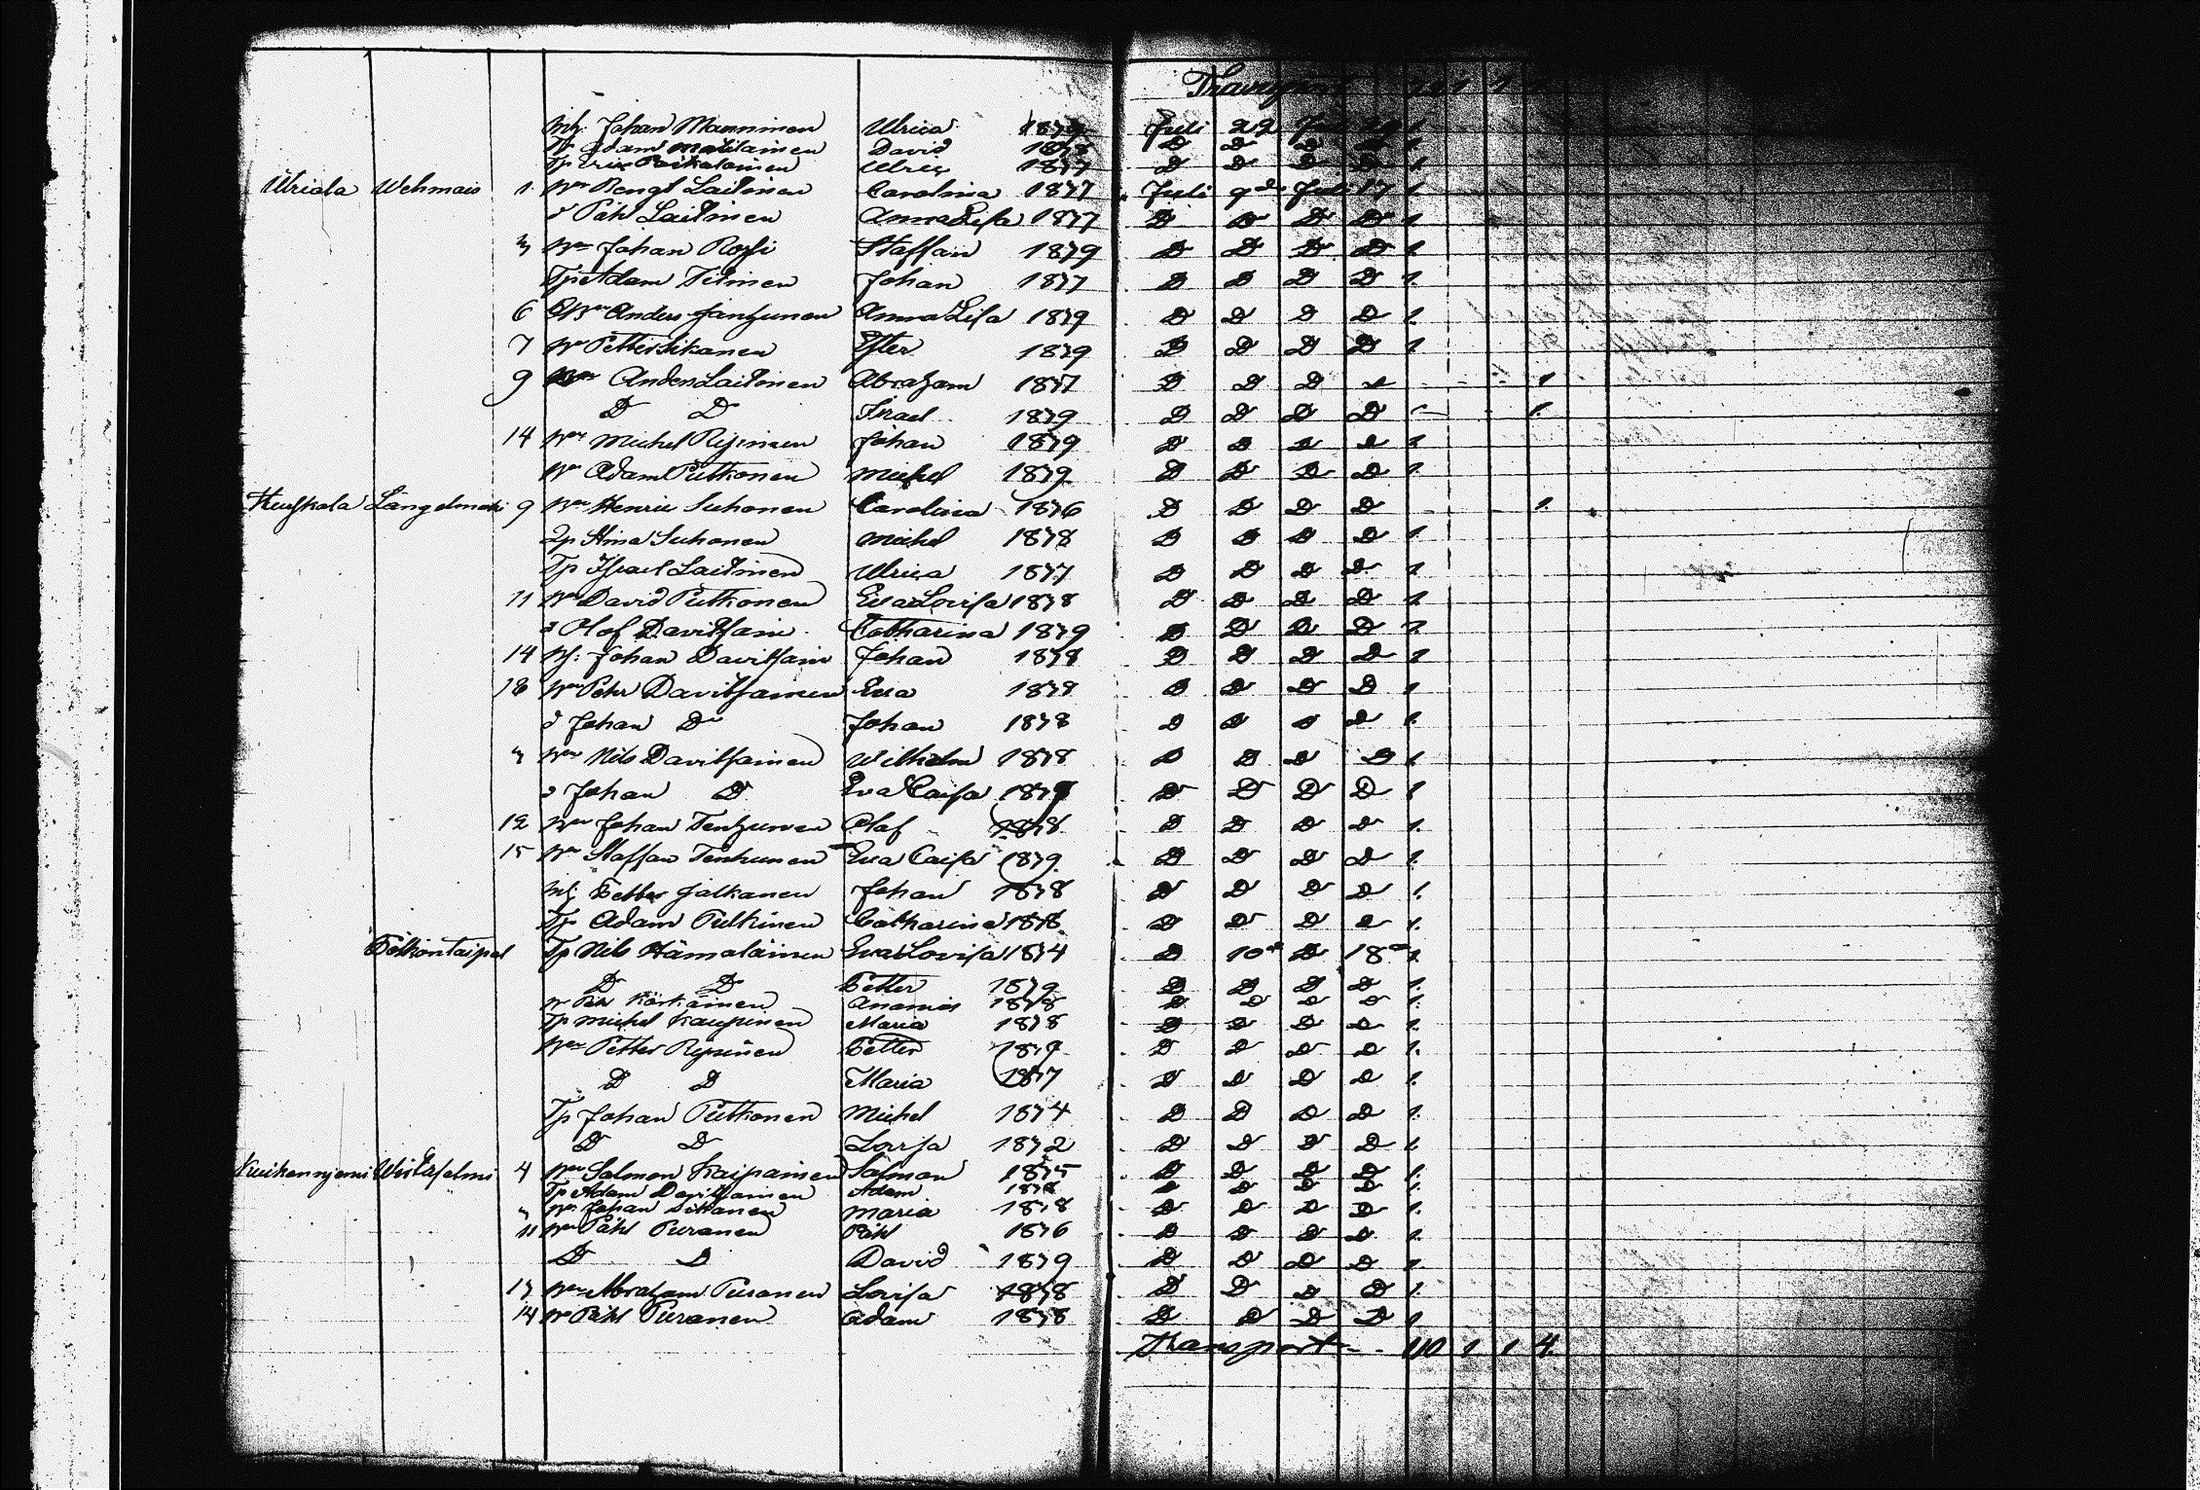 Transport
Inh. Johan Manninen Ulrica 1879 Juli 29 Juli 1
Tp Adam Matilainen David D D D D 1
Tp Eric Ulrica 1877 D D D D 1
Uriala Wehmais 1 Wn Bengt Laitinen Carolina 1877 Juli 9de Juli 17 1.
d Påhl Laitinen Anna Lisa 1877 D D D D 1.
3 Wn Johan Rossi Staffan 1879 D D D D 1.
Tp Adam Johan 1877 D D D D 1.
6 Wn Anders Janhunen Anna Lisa 1879 D D D D 1.
7 Wn Petter Sikanen Ester 1879 D D D D 1.
9 Wn Anders Laitinen Abraham 1877 D D D D 1
D D Israel 1879 D D D D 1.
14 Wn Michel Johan 1879 D D D D 1
Wn Adam Putkonen Michel 1879 D D D D 1.
Längelmäki 9 Wn Henric Suhonen Carolina 1876 D D D D 1.
Tp Stina Suhonen Michel 1878 D D D D 1
Tp Israel Laitinen Ulrica 1877 D D D D 1
11 Wn David Putkonen Eva Lovisa 1878 D D D D 1
d Olof Davitsain Catharina 1879 D D D D 1
14 Johan Davitsain Johan 1878 D D D D 1
18 Wn Pehr Davitsainen Eva 1878 D D D D 1
d Johan D Johan 1878 D D D D 1.
Wn Nils Davitsainen Wilhelm 1878 D D D D 1.
d Johan D Eva Caisa D D D D 1
12 Wn Johan Tenhunen Olof 1878 D D D D 1.
15 Wn Staffan Tenhunen Eva Caisa 1879 D D D D 1.
Inh. Petter Jalkanen Johan 1878 D D D D 1.
Tp Adam Pulkinen Catharina 1878 D D D D 1.
Tp Nils Hämäläinen Eva Lovisa 1874 D 10de D 18de 1.
D D Petter 1879 D D D D 1.
1878 D D D D 1.
Tp Michel Maria 1878 D D D D 1.
Wn Petter Petter 1879 D D D D 1.
D D Maria 1877 D D D D 1.
Tp Johan Putkonen Michel 1874 D D D D 1.
D D Lovisa 1872 D D D D 1.
4 Wn Salmon Kaipainen Salmon 1875 D D D D 1.
Tp Adam Davitsainen Adam 1878 D D D D 1.
Wn Johan Maria 1878 D D D D 1.
11 Wn Påhl Puranen Påhl 1876 D D D D 1.
D D David 1879 D D D D 1.
13 Wn Abraham Puranen Lovisa 1878 D D D D 1.
14 Wn Påhl Puranen Adam 1878 D D D D 1
Transport 40 1 1 4.